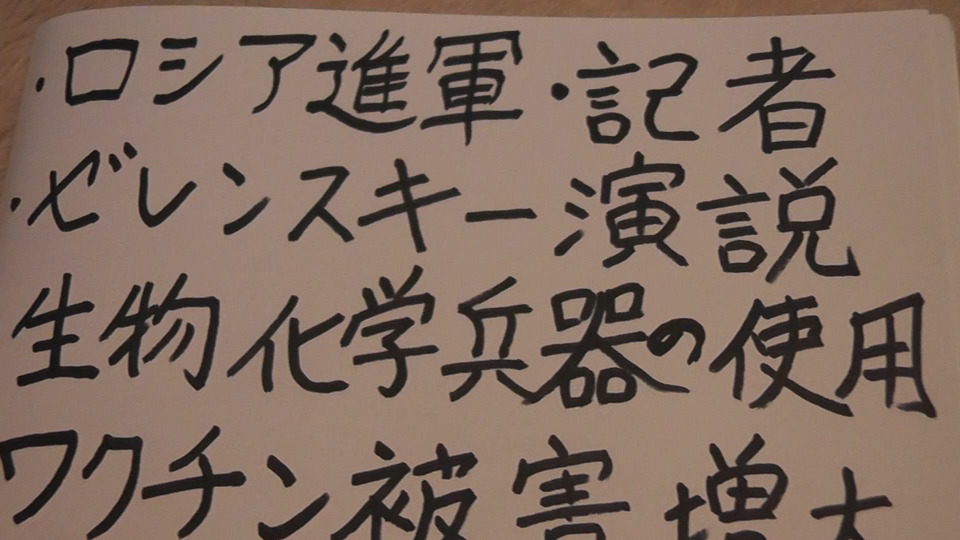 ・ロシア進軍・記者
・ゼレンスキー演説
生物化学兵器の使用
ワクチン被害増大